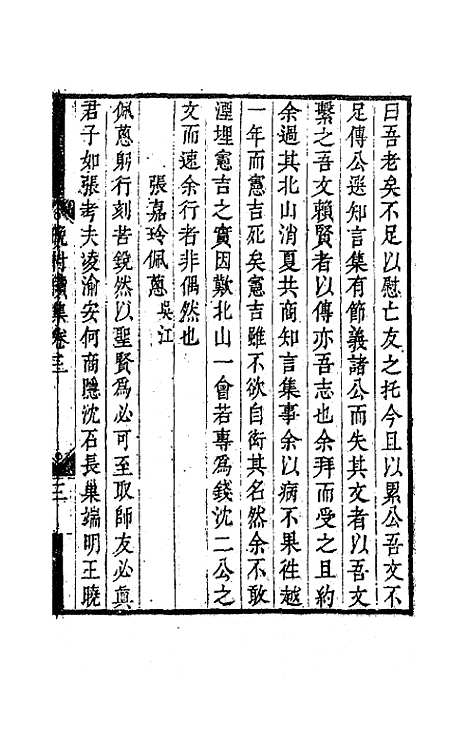 曰吾老矣不足以慰亡友之托今且以累公吾文不
足傳公選知言集有節義諸公而失其文者以吾文
繫之吾文賴賢者以傳亦吾志也余拜而受之且約
余過其北山消夏共商知言集事余以病不果徃越
一年而憲吉死矣憲吉雖不欲自衒其名然余不敢
湮埋憲吉之實因歎北山一會若專為錢沈二公之
文而速余行者非偶然也
張嘉玲佩蔥 吳江
佩蔥躬行刻苦銳然以聖賢為必可至取師友必眞
君子如張考夫凌渝安何商隱沈石長巢端明王曉
集卷三
三